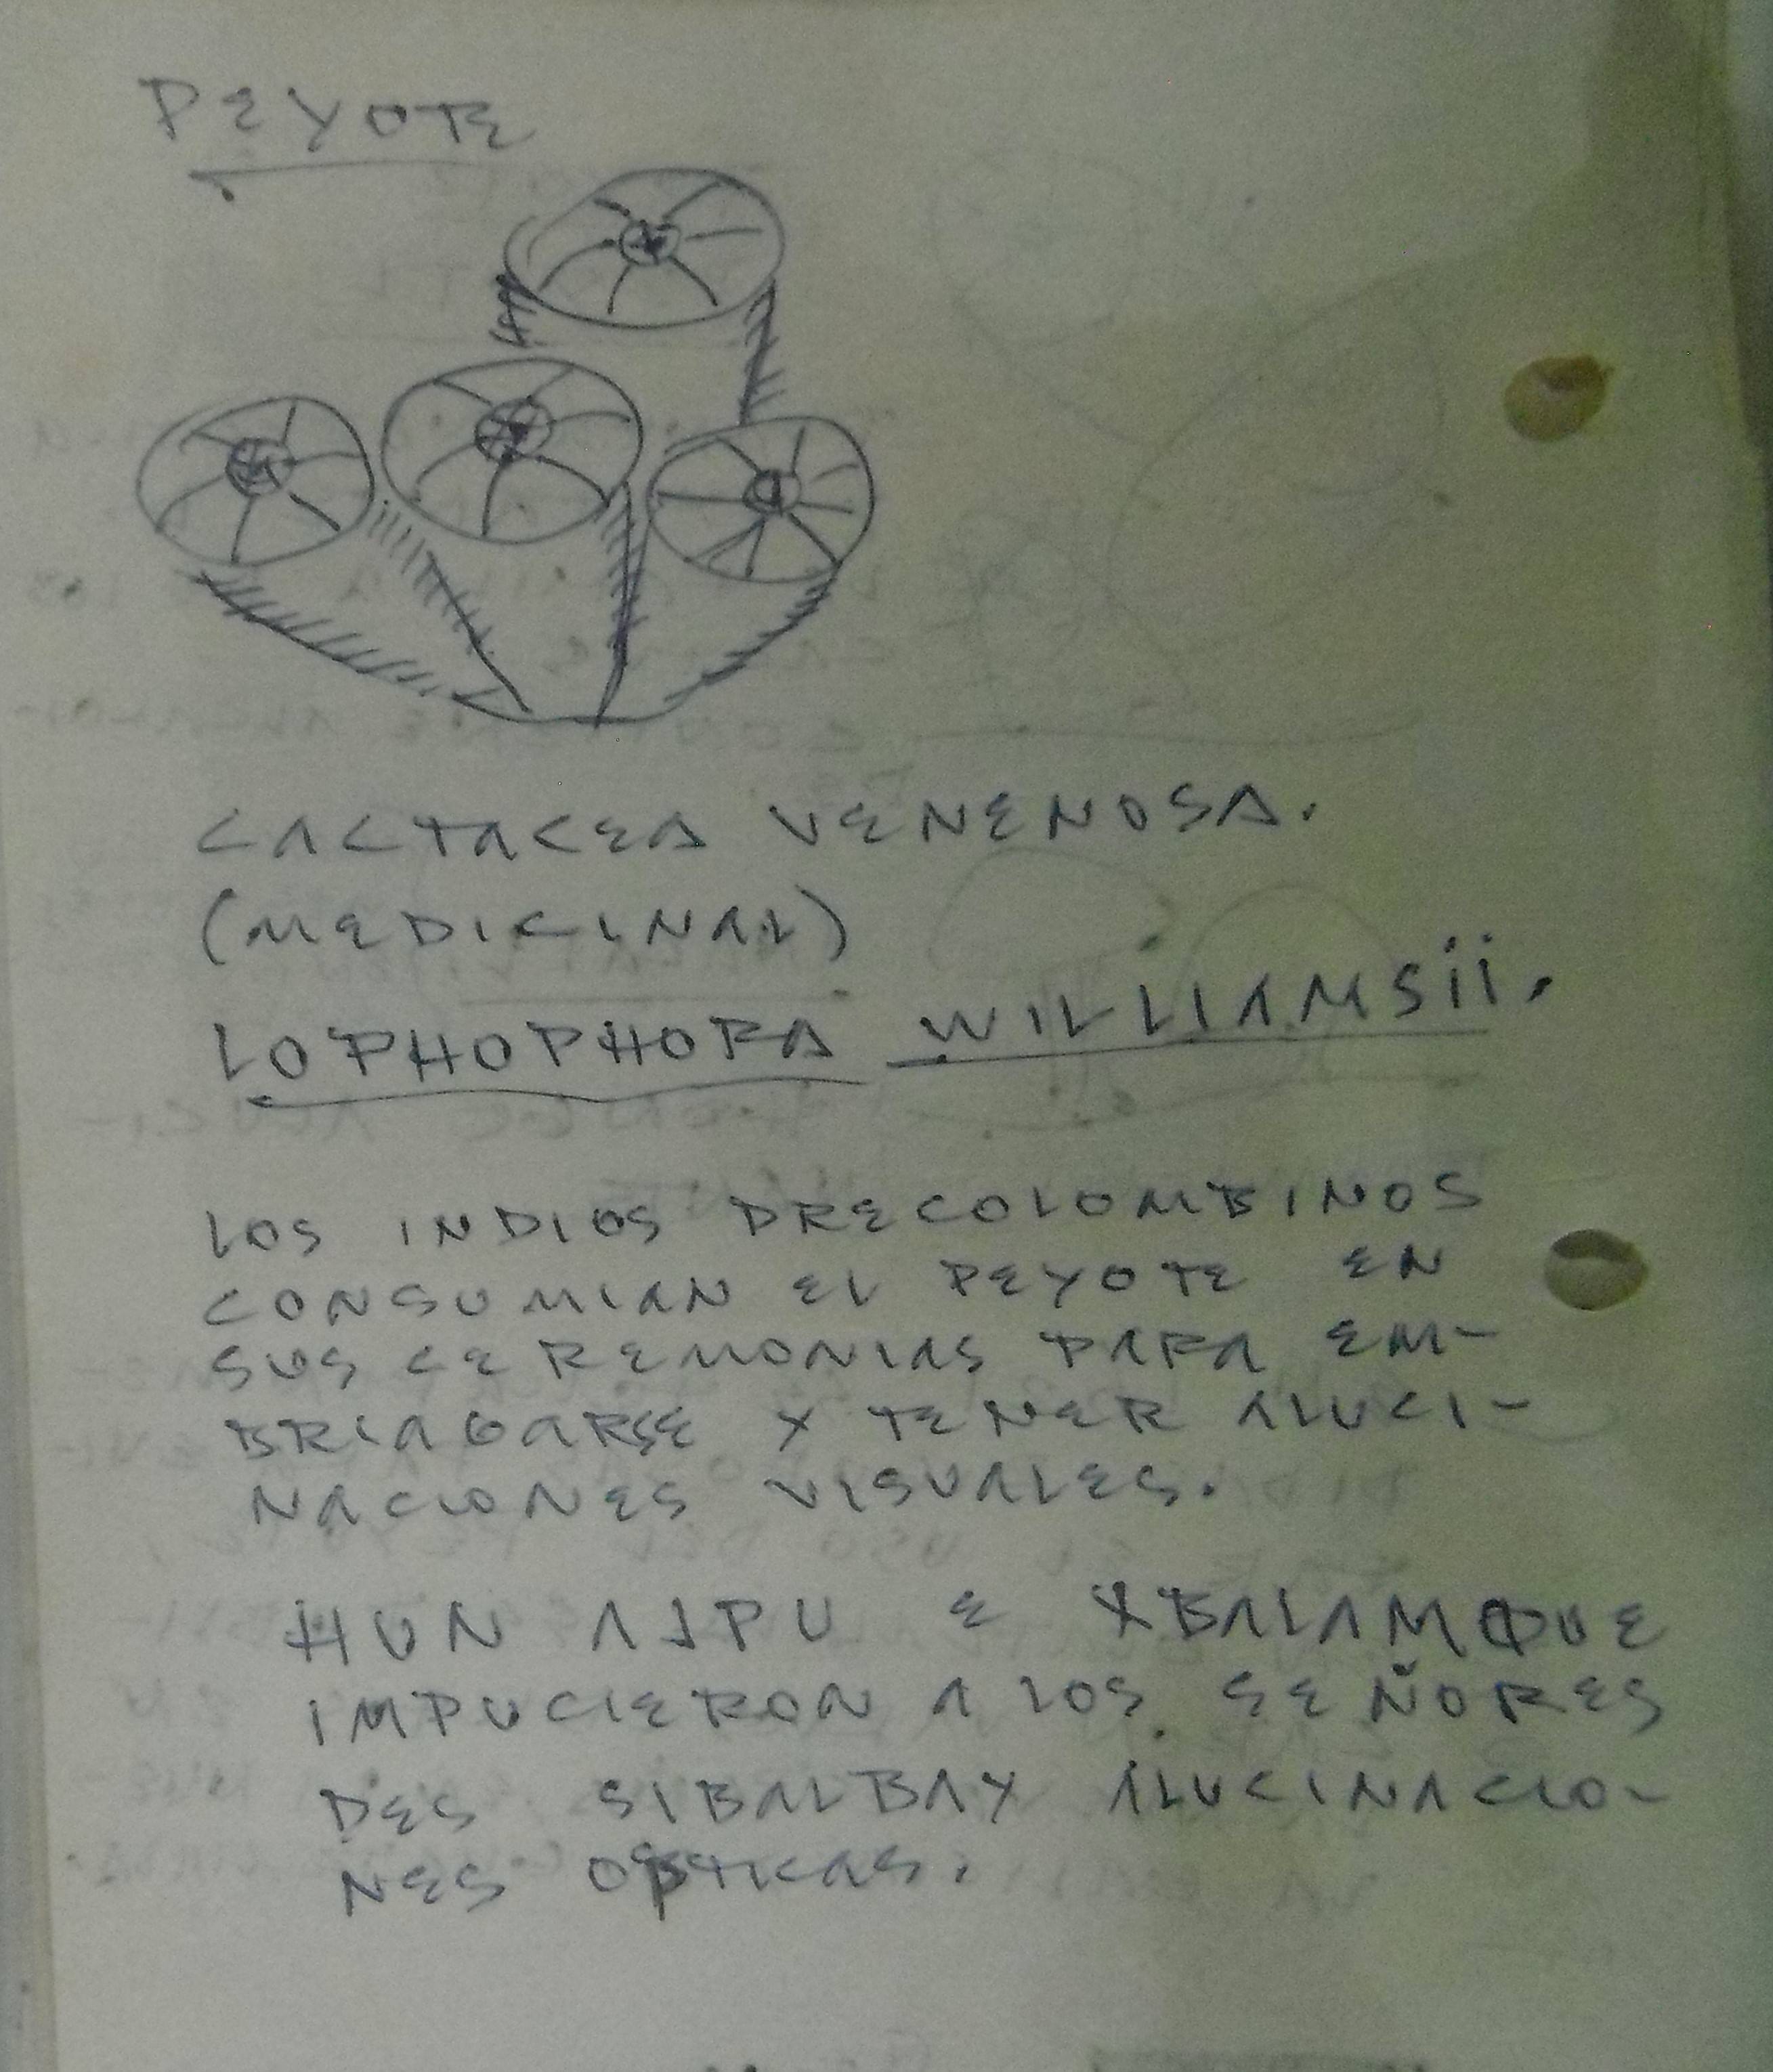 PEYOTE
CACTACEA VENENOSA.
(MEDICINAL)
LOPHOPHORA WILLIAMSii.
LOS INDIOS PRECOLOMBINOS
CONSUMIAN EL PEYOTE EN
SUS CEREMONIAS PARA EM-
BRIAGARSE Y TENER ALUCI-
NACIONES VISUALES.
HUN AJPU E XBALAMQUE
IMPUCIERON A LOS SEÑORES
DES SIBALBAY ALUCINACIO-
NES OPTICAS.